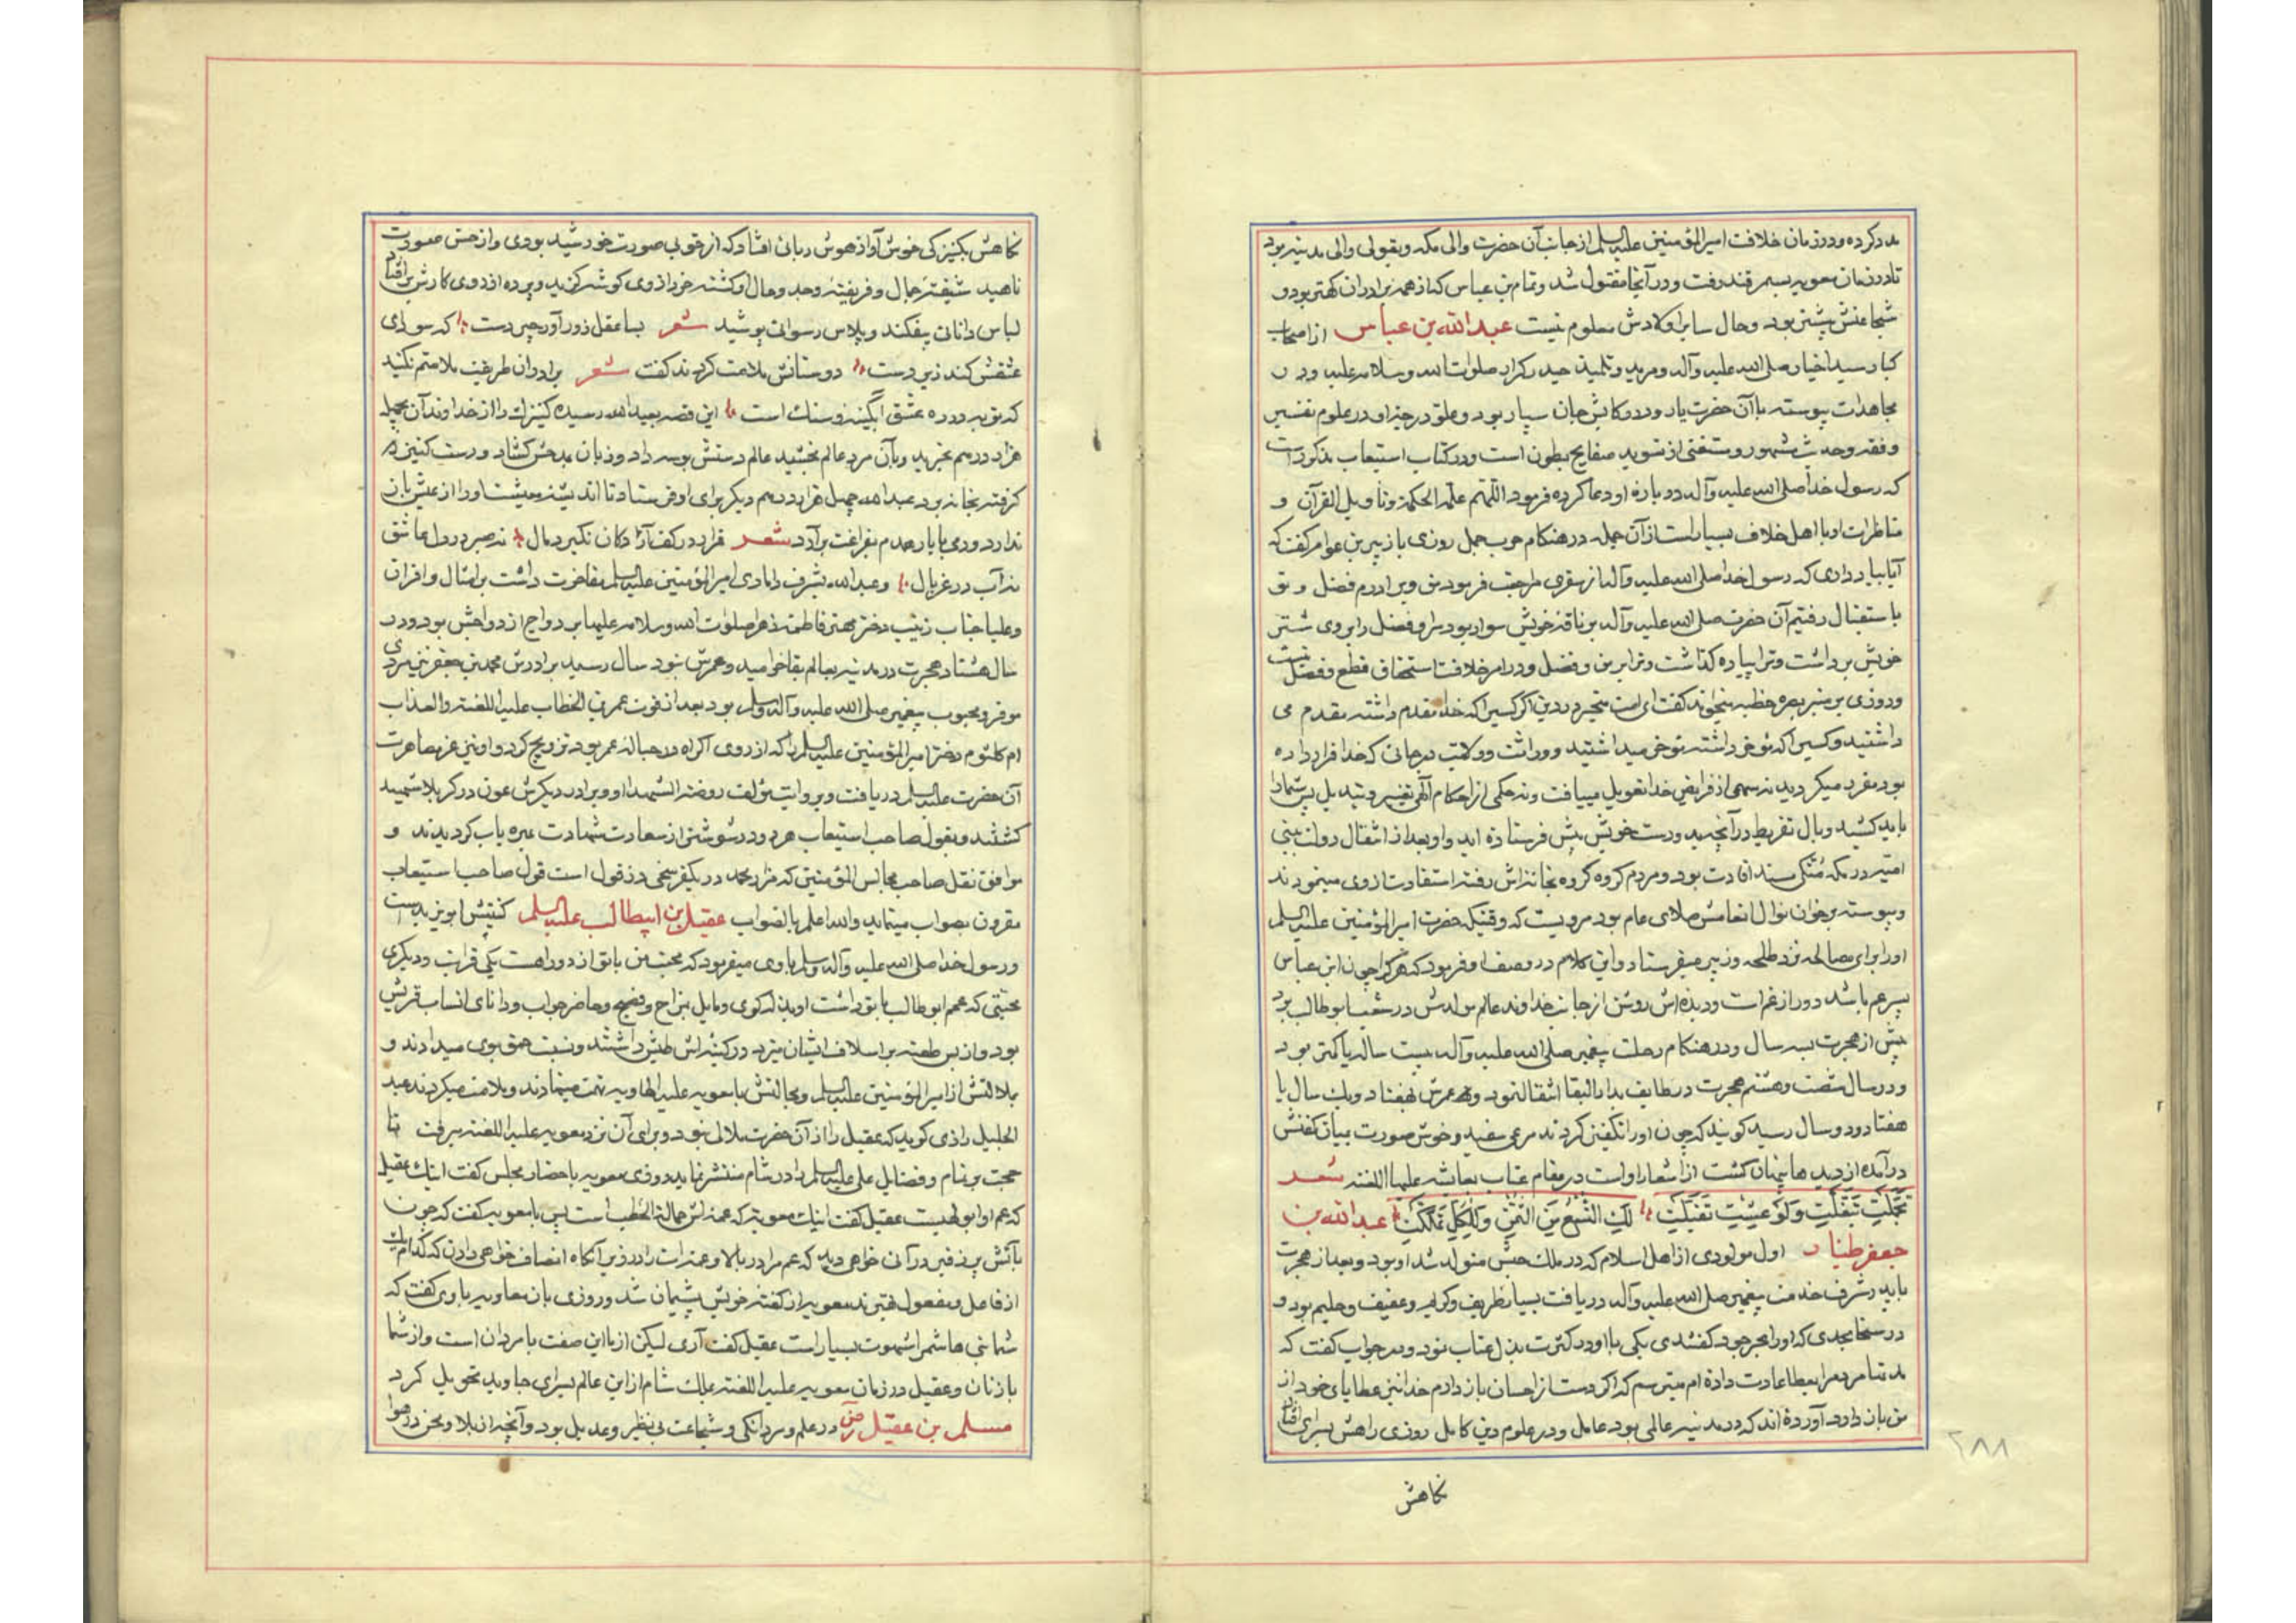 مدد کرده و در زمان خلافت امیرالمؤمنین علیه السلم از جانب آن حضرت والی مکه و بقولی والی مدینه بود
تا در زمان معویه بسمرقند رفت و در آنجا مقتول شد و تمام بن عباس که از همه برادران کهتر بود و
شجاعتش بیشتر بود و حال سایر اولادش معلوم نیست عبدالله بن عباس از اصحاب
کبار سید اخیار صلی الله علیه وآله و مرید و تلمیذ حیدر کرار صلوات الله وسلامه علیه و در
مجاهدات پیوسته با آن حضرت یار و در رکابش جان سپار بود و علو درجه او در علوم تفسیر
و فقه و حدیث مشهور و مستغنی از تسوید صفایح بطون است و در کتاب استیعاب مذکور است
که رسول خدا صلی الله علیه وآله در باره او دعا کرده فرمود اللهم علمه الحکمة وتاویل القرآن و
مناظرات او با اهل خلاف بسیار است از آن جمله در هنگام حرب جمل روزی با زبیر بن عوام گفت که
آیا بیاد داری که رسول خدا صلی الله علیه وآله از سفری مراجعت فرمود من و برادرم فضل و تو
باستقبال رفتیم آن حضرت صلی الله علیه وآله بر ناقه خویش سوار بود مرا و فضل را بر وی شتر
خویش برداشت و ترا پیاده گذاشت و ترا بر من و فضل و در امر خلافت استحقاق قطع و فصل نیست
و روزی بر منبر بصره خطبه میخواند گفت ای امت متحیر در دین اگر کسیرا که خدا مقدم داشته مقدم می
داشتید و کسیرا که مؤخر داشته مؤخر میداشتید و وراثت و ولایت در جائی که خدا قرار داده
بود مقرر میکردید نه سهمی از فرایض خدا تعویل مییافت و نه حکمی از احکام الهی تغییر و تبدیل پس شما را
باید کشید وبال تفریط در آنچه بدست خویش پیش فرستاده اید و او بعد از انتقال دولت ببنی
امیه در مکه متکی مسند افادت بود و مردم گروه گروه بخانه‌اش رفته استفادت از وی مینمودند
و پیوسته بر خوان نوال انعامش صلای عام بود مرویست که وقتیکه حضرت امیرالمؤمنین علیه السلم
او را برای مصالحه نزد طلحه و زبیر میفرستاد و این کلام در وصف او فرمود که هر که را چون ابن عباس
پسر عم باشد دور از غم است و دیده‌اش روشن از جانب خداوند عالم مولدش در شعب ابوطالب بود
پیش از هجرت بسه سال و در هنگام رحلت پیغمبر صلی الله علیه وآله بیست ساله یا کمتر بود
و در سال شصت و هشتم هجرت در طایف بدار البقا انتقال نمود و عمرش بهفتاد و یک سال یا
هفتاد و دو سال رسید گویند که چون او را تکفین کردند مرغی سفید و خوش صورت بمیان کفنش
درآمده از دیدها پنهان گشت از اشعار او است در مقام عتاب بعایشه علیها اللعنه شعر
تَجَمَّلْتِ تَبَغَّلْتِ وَلَوْ عِشْتِ تَفَیَّلْتِ لَکِ التُّسْعُ مِنَ الثُّمْنِ وَلِلکُلِّ تَمَلَّکْتِ عبدالله بن
جعفر طیار اول مولودی از اهل اسلام که در ملک حبش متولد شد او بود و بعد از هجرت
با پدر شرف خدمت پیغمبر صلی الله علیه وآله دریافت بسیار ظریف و کریم و عفیف و حلیم بود و
در سخا بحدی که او را بحر جود گفتندی یکی با او در کثرت بذل عتاب نمود وی در جواب گفت که
مدتها مردم را بعطا عادت داده‌ام میترسم که اگر دست از احسان باز دارم خدا نیز عطایای خود از
من باز دارد آورده‌اند که در مدینه عالمی بود عامل و در علوم دین کامل روزی راهش بسرای افتاد
نکاهش
۲۸۸
نکاهش بکنیزکی خوش آواز هوش ربائی افتاد که از خوبی صورت خورشید بودی و از حسن صوت
ناهید شیفته جمال و فریفته وجد و حال او گشته خرد از وی گوشه گزید و پرده از روی کارش برافتاد
لباس دانائی بیفکند و پلاس رسوائی پوشید شعر بسا عقل زورآور چیره دست که سودای
عشقش کند زیردست دوستانش ملامت کردند گفت شعر برادران طریقت ملامتم نکنید
که توبه در ره عشق آبگینه و سنگ است این قصه بعبدالله رسیده کنیزک را از خداوند آن بچهل
هزار درهم بخرید و بآن مرد عالم بخشید عالم دستش بوسه داد و زبان بمدحش گشاد و دست کنیز
گرفته بخانه برد عبدالله چهل هزار درهم دیگر برای او فرستاد تا اندیشه معیشت او را از عیش باز
ندارد و دمی با یار همدم بفراغت برآرد شعر قرار در کف آزادگان نگیرد مال نه صبر در دل عاشق
نه آب در غربال و عبدالله بشرف دامادی امیرالمؤمنین علیه السلم مفاخرت داشت بر امثال و اقران
و علیا جناب زینب دختر مهتر فاطمه زهرا صلوات الله وسلامه علیها بر دواج ازدواجش بود و در
سال هشتاد هجرت در مدینه بعالم بقا خرامید و عمرش نود سال رسید برادرش محمد بن جعفر نیز مردی
موقر و محبوب پیغمبر صلی الله علیه وآله وسلم بود بعد از فوت عمر بن الخطاب علیه اللعنة والعذاب
ام کلثوم دختر امیرالمؤمنین علیه السلم را که از روی اکراه در حباله عمر بود تزویج کرد و او نیز عز مصاهرت
آن حضرت علیه السلم دریافت و بروایت مؤلف روضة الشهدا او و برادر دیگرش عون در کربلا شهید
گشتند و بقول صاحب استیعاب هر دو در شوشتر از سعادت شهادت بهره یاب گردیدند و
موافق نقل صاحب مجالس المؤمنین که مزار محمد در یکفرسخی دزفول است قول صاحب استیعاب
مقرون بصواب مینماید والله اعلم بالصواب عقیل بن ابیطالب علیه السلم کنیتش ابویزید است
و رسول خدا صلی الله علیه وآله وسلم با وی میفرمود که محبت من با تو از دو راهست یکی قرابت و دیگری
محبتی که عمم ابوطالب با تو داشت او بذله گوی و مایل بمزاح و فصیح و حاضر جواب و دانای انساب قریش
بود و از بس طعنه بر اسلاف ایشان میزد در کینه‌اش طیش داشتند و نسبت حمق بوی میدادند و
بملالتش از امیرالمؤمنین علیه السلم و مجالستش با معویه علیه الهاویه تهمت مینهادند و ملامت میکردند عبد
الجلیل رازی گوید که عقیل را از آن حضرت ملالی نبود و برای آن نزد معویه علیه اللعنه میرفت تا
حجت بر تمام و فضایل علی علیه السلم را در شام منتشر نماید روزی معویه با حضار مجلس گفت اینک عقیل
که عم او ابولهبست عقیل گفت اینک معویه که عمه‌اش حمالة الحطب است پس با معویه گفت که چون
بآتش برزفین درآئی خواهی دید که عم مرا در بالا و عمه‌ات را در زیر آنگاه انصاف خواهی دادن که کدام یک
از فاعل و مفعول بهترند معویه از گفته خویش پشیمان شد و روزی باز معاویه با وی گفت که
شما بنی هاشم را شهوت بسیار است عقیل گفت آری لیکن از ما این صفت با مردان است و از شما
با زنان و عقیل در زمان معویه علیه اللعنه بملک شام از این عالم بسرای جاوید تحویل کرد
مسلم بن عقیل رض در علم و مردانگی و شجاعت بی نظیر و عدیل بود و آنچه از بلا و محن در هوا